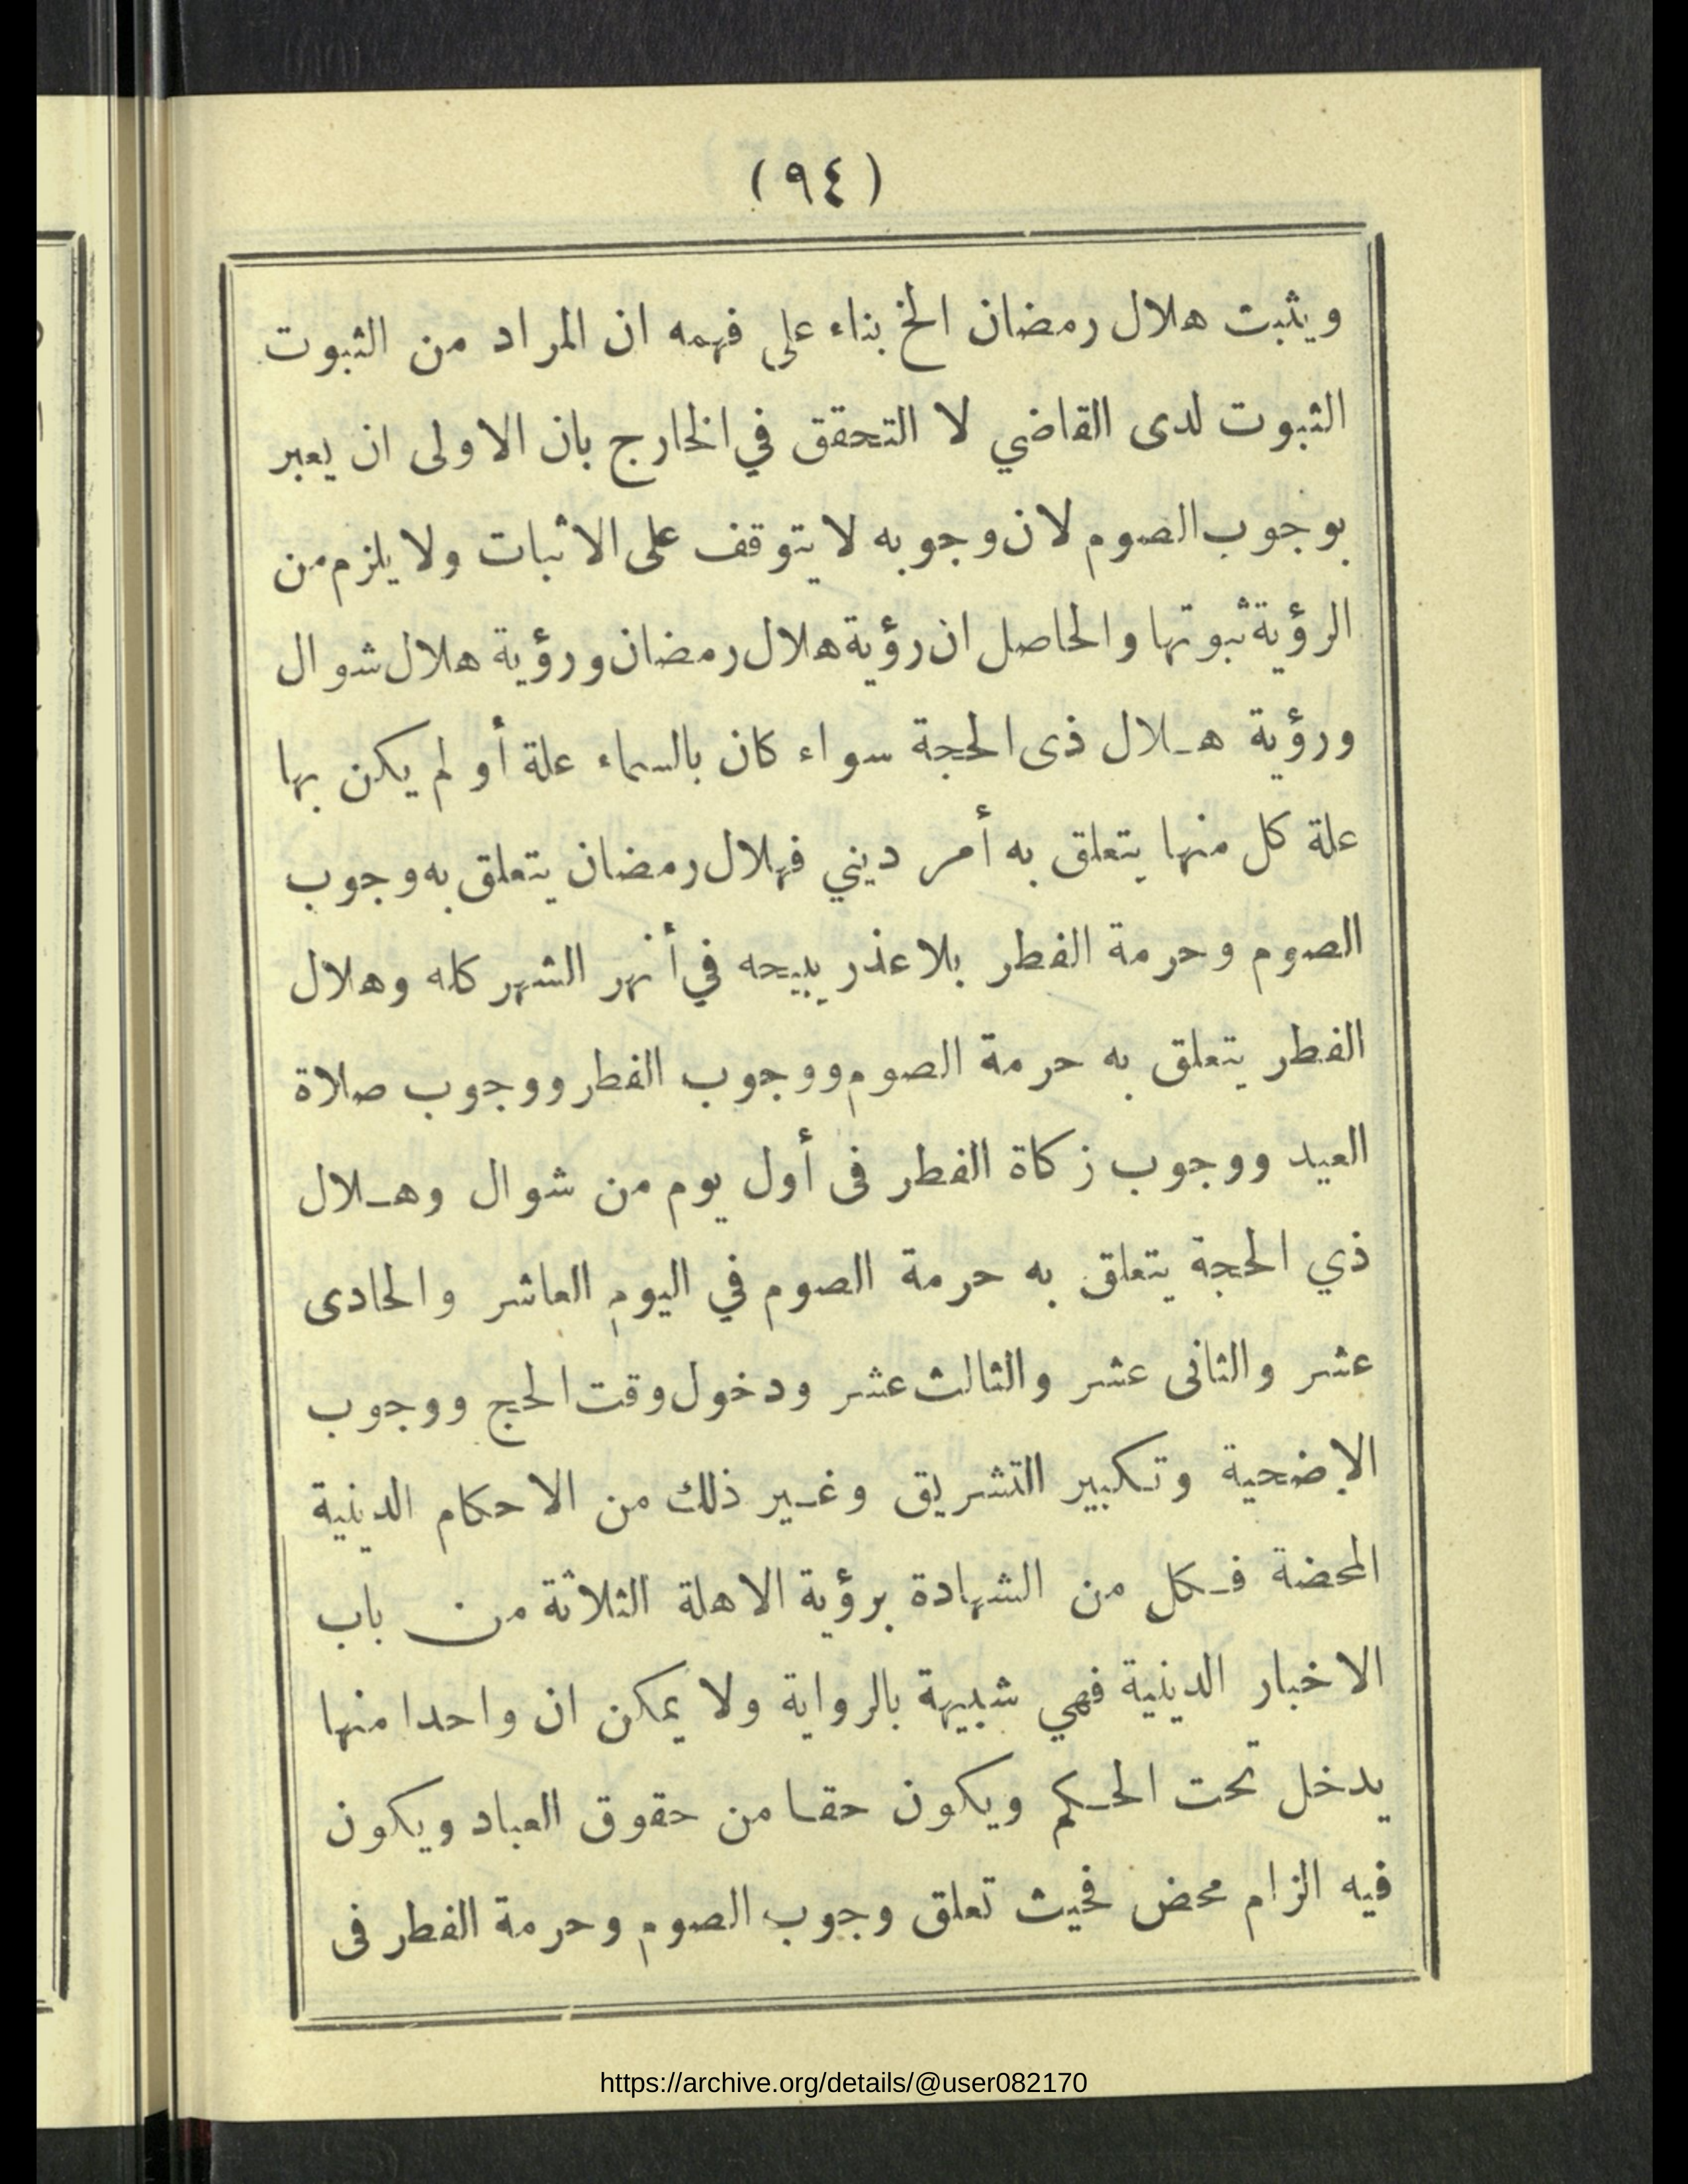 (٩٤)
ويثبت هلال رمضان الخ بناء على فهمه ان المراد من الثبوت
الثبوت لدى القاضي لا التحقق في الخارج بان الاولى ان يعبر
بوجوب الصوم لان وجوبه لا يتوقف على الاثبات ولا يلزم من
الرؤية ثبوتها والحاصل ان رؤية هلال رمضان ورؤية هلال شوال
ورؤية هـلال ذى الحجة سواء كان بالسماء علة أو لم يكن بها
علة كل منها يتعلق به أمر ديني فهلال رمضان يتعلق به وجوب
الصوم وحرمة الفطر بلا عذر يبيحه في أنهر الشهر كله وهلال
الفطر يتعلق به حرمة الصوم ووجوب الفطر ووجوب صلاة
العيد ووجوب زكاة الفطر فى أول يوم من شوال وهـلال
ذي الحجة يتعلق به حرمة الصوم في اليوم العاشر والحادى
عشر والثانى عشر والثالث عشر ودخول وقت الحج ووجوب
الإضحية وتكبير التشريق وغـير ذلك من الاحكام الدينية
المحضة فـكل من الشهادة برؤية الاهلة الثلاثة من باب
الاخبار الدينية فهي شبيهة بالرواية ولا يمكن ان واحدا منها
يدخل تحت الحـكم ويكون حقـا من حقوق العباد ويكون
فيه الزام محض فحيث تعلق وجوب الصوم وحرمة الفطر فى
https://archive.org/details/@user082170